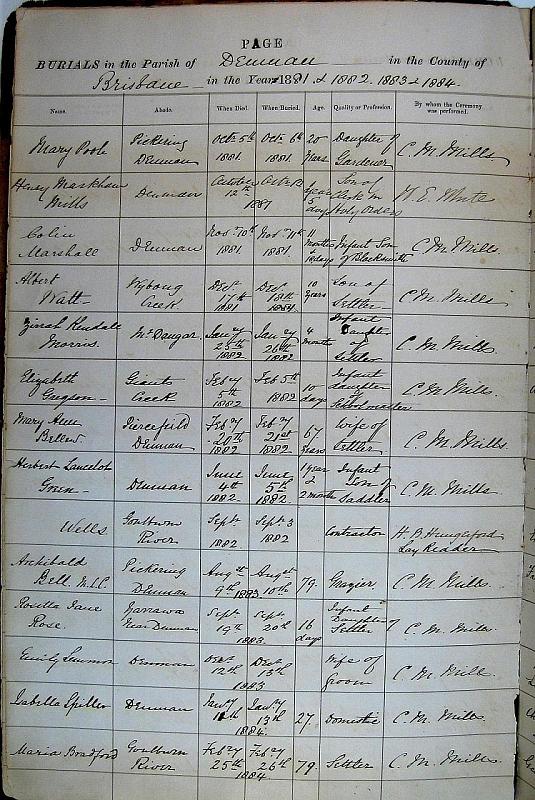 PAGE
BURIALS in the Parish of Denman in the County of
Brisbane in the Year 1881 & 1882. 1883 & 1884.
Name. Abode. When Died. When Buried. Age. Quality or Profession. By whom the Ceremony was performed.
Mary Pooh Pickering Denman Octr 5th 1881. Octr 6th 1881. 20 Years Daughter of Gardener C. M. Mills
Henry Markham Mills Denman October 12th 1881 Years 5 days Son of Clerk in Holy Orders W. E. White
Colin Marshall Denman Novr 10th 1881. Novr 11th 1881. 11 months 10 days Infant Son of Blacksmith C. M. Mills.
Albert Watt Wybong Creek. Decr 17th 1881 Decr 18th 1881 10 Years Son of Settler C. M. Mills
Zinah Kendall Morris. Mt Dangar. Jany 25th 1882 Jany 26th 1882 4 months Infant Daughter of Settler C. M. Mills.
Elizabeth Giants Creek Feby 5th 1882 Feb 5th 1882 10 days Infant daughter of Schoolmaster C. M. Mills.
Mary Ann Bellew. Piercefield Denman Feby 20th 1882 Feby 21st 1882 67 Years Wife of Settler C. M. Mills.
Herbert Lancelot Green Denman June 4th 1882. June 5th 1882. 1 year & 2 months Infant Son of Saddler C. M. Mills
Wells Goulburn River Sept. 1882. Sept. 3 1882 Contractor H. B. Hungerford Lay Reader
Archibald Bell M.L.C. Pickering Denman Augst 9th Augst 10th 1883 79. Grazier. C. M. Mills.
Jane Rose. Yarrawa Near Denman Sept. 19th Sept. 20th 1883. 16 days Infant Daughter of Settler C. M. Mills.
Emily Denman Decr 12th Decr 13th 1883 Wife of Groom C. M. Mills.
Isabella Spiller Denman Jany Jany 13th 1884. 27. Domestic C. M. Mills.
Maria Bradford Goulburn River Feby 25th Feby 26th 1884. 79. Settler C. M. Mills.